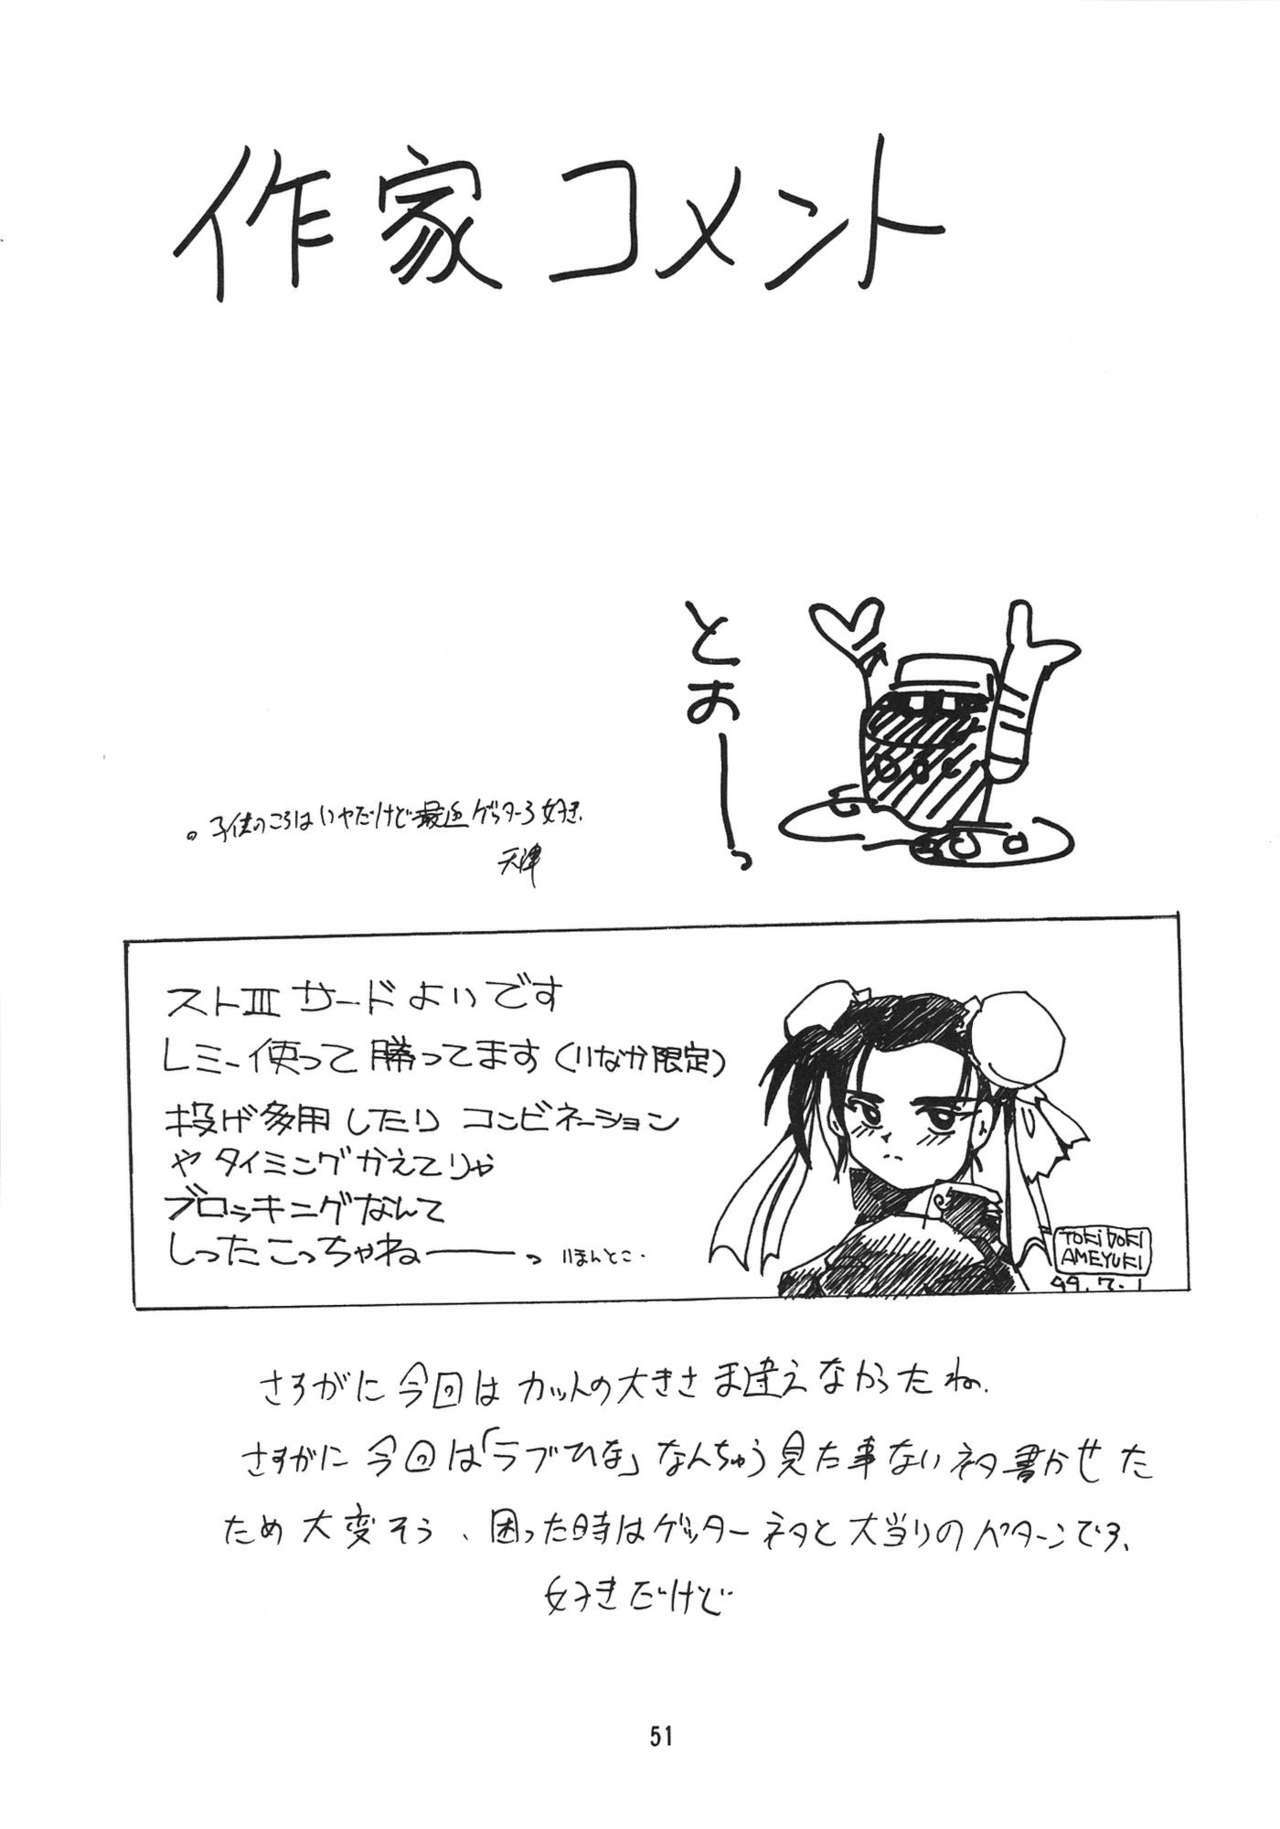 作家コメント
とおーっ
。子供のころはいやだけど最近ゲッター3好き.
天津
ストⅢ サード よいです
レミー使って勝ってます(いなか限定)
投げ多用したり コンビネーション
や タイミングかえてりゃ
ブロッキングなんて
しったこっちゃねーーっ
TOKiDOKi
AMEYUKi
99.7.1
さすがに今回はカットの大きさま違えなかったね.
さすがに今回は「ラブひな」なんちゅう見た事ないネタ書かせた
ため大変そう、困った時はゲッターネタと大当りのパターンです、
好きだけど
51